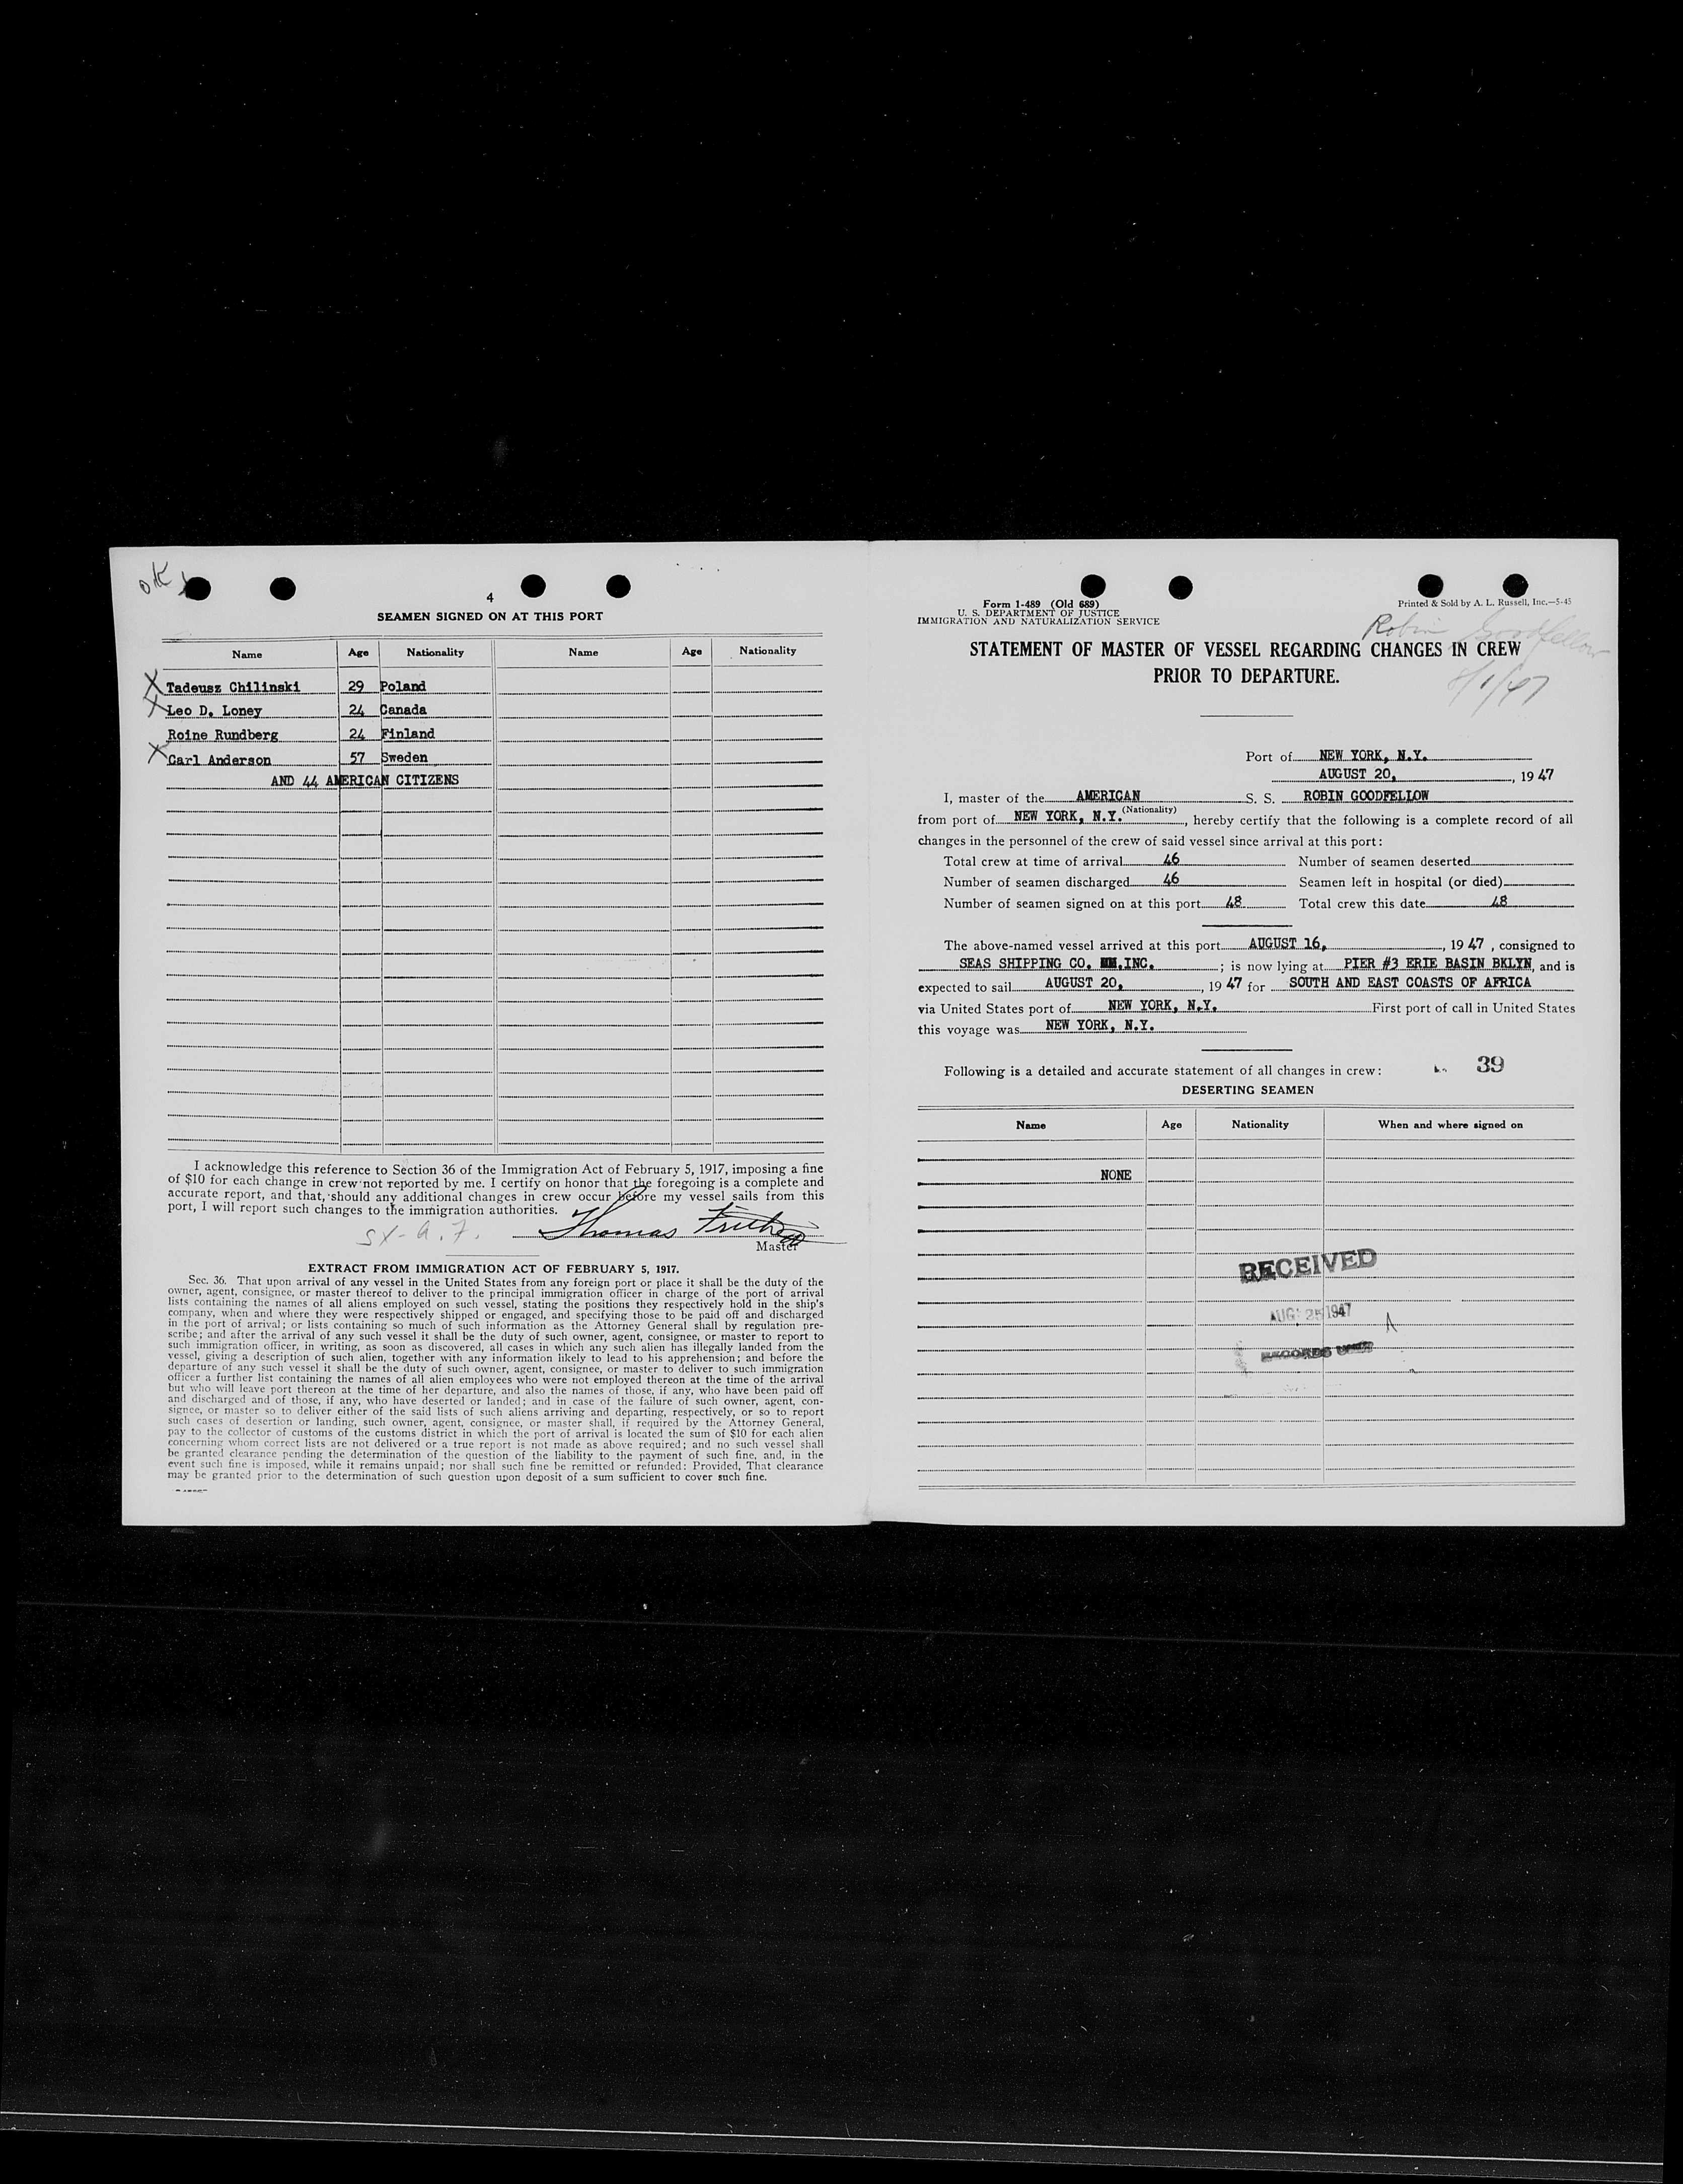 OK
4
SEAMEN SIGNED ON AT THIS PORT
Name Age Nationality Name Age Nationality
X Tadeusz Chilinski 29 Poland
X Leo D. Loney 24 Canada
Roine Rundberg 24 Finland
X Carl Anderson 57 Sweden
AND 44 AMERICAN CITIZENS
I acknowledge this reference to Section 36 of the Immigration Act of February 5, 1917, imposing a fine
of $10 for each change in crew not reported by me. I certify on honor that the foregoing is a complete and
accurate report, and that, should any additional changes in crew occur before my vessel sails from this
port, I will report such changes to the immigration authorities.
Thomas
Master
EXTRACT FROM IMMIGRATION ACT OF FEBRUARY 5, 1917.
Sec. 36. That upon arrival of any vessel in the United States from any foreign port or place it shall be the duty of the
owner, agent, consignee, or master thereof to deliver to the principal immigration officer in charge of the port of arrival
lists containing the names of all aliens employed on such vessel, stating the positions they respectively hold in the ship's
company, when and where they were respectively shipped or engaged, and specifying those to be paid off and discharged
in the port of arrival; or lists containing so much of such information as the Attorney General shall by regulation pre-
scribe; and after the arrival of any such vessel it shall be the duty of such owner, agent, consignee, or master to report to
such immigration officer, in writing, as soon as discovered, all cases in which any such alien has illegally landed from the
vessel, giving a description of such alien, together with any information likely to lead to his apprehension; and before the
departure of any such vessel it shall be the duty of such owner, agent, consignee, or master to deliver to such immigration
officer a further list containing the names of all alien employees who were not employed thereon at the time of the arrival
but who will leave port thereon at the time of her departure, and also the names of those, if any, who have been paid off
and discharged and of those, if any, who have deserted or landed; and in case of the failure of such owner, agent, con-
signee, or master so to deliver either of the said lists of such aliens arriving and departing, respectively, or so to report
such cases of desertion or landing, such owner, agent, consignee, or master shall, if required by the Attorney General,
pay to the collector of customs of the customs district in which the port of arrival is located the sum of $10 for each alien
concerning whom correct lists are not delivered or a true report is not made as above required; and no such vessel shall
be granted clearance pending the determination of the question of the liability to the payment of such fine, and, in the
event such fine is imposed, while it remains unpaid; nor shall such fine be remitted or refunded: Provided, That clearance
may be granted prior to the determination of such question upon deposit of a sum sufficient to cover such fine.
Form 1-489 (Old 689)
U. S. DEPARTMENT OF JUSTICE
IMMIGRATION AND NATURALIZATION SERVICE
Printed & Sold by A. L. Russell, Inc.—5-45
Robin Goodfellow
STATEMENT OF MASTER OF VESSEL REGARDING CHANGES IN CREW
PRIOR TO DEPARTURE.
Port of NEW YORK, N.Y.
AUGUST 20, 1947
I, master of the AMERICAN S. S. ROBIN GOODFELLOW
(Nationality)
from port of NEW YORK, N.Y., hereby certify that the following is a complete record of all
changes in the personnel of the crew of said vessel since arrival at this port:
Total crew at time of arrival 46 Number of seamen deserted
Number of seamen discharged 46 Seamen left in hospital (or died)
Number of seamen signed on at this port 48 Total crew this date 48
The above-named vessel arrived at this port AUGUST 16, 1947, consigned to
SEAS SHIPPING CO. INC. ; is now lying at PIER #3 ERIE BASIN BKLYN, and is
expected to sail AUGUST 20, 1947 for SOUTH AND EAST COASTS OF AFRICA
via United States port of NEW YORK, N.Y. First port of call in United States
this voyage was NEW YORK, N.Y.
Following is a detailed and accurate statement of all changes in crew: 39
DESERTING SEAMEN
Name Age Nationality When and where signed on
NONE
RECEIVED
AUG 25 1947
RECORDS UNIT